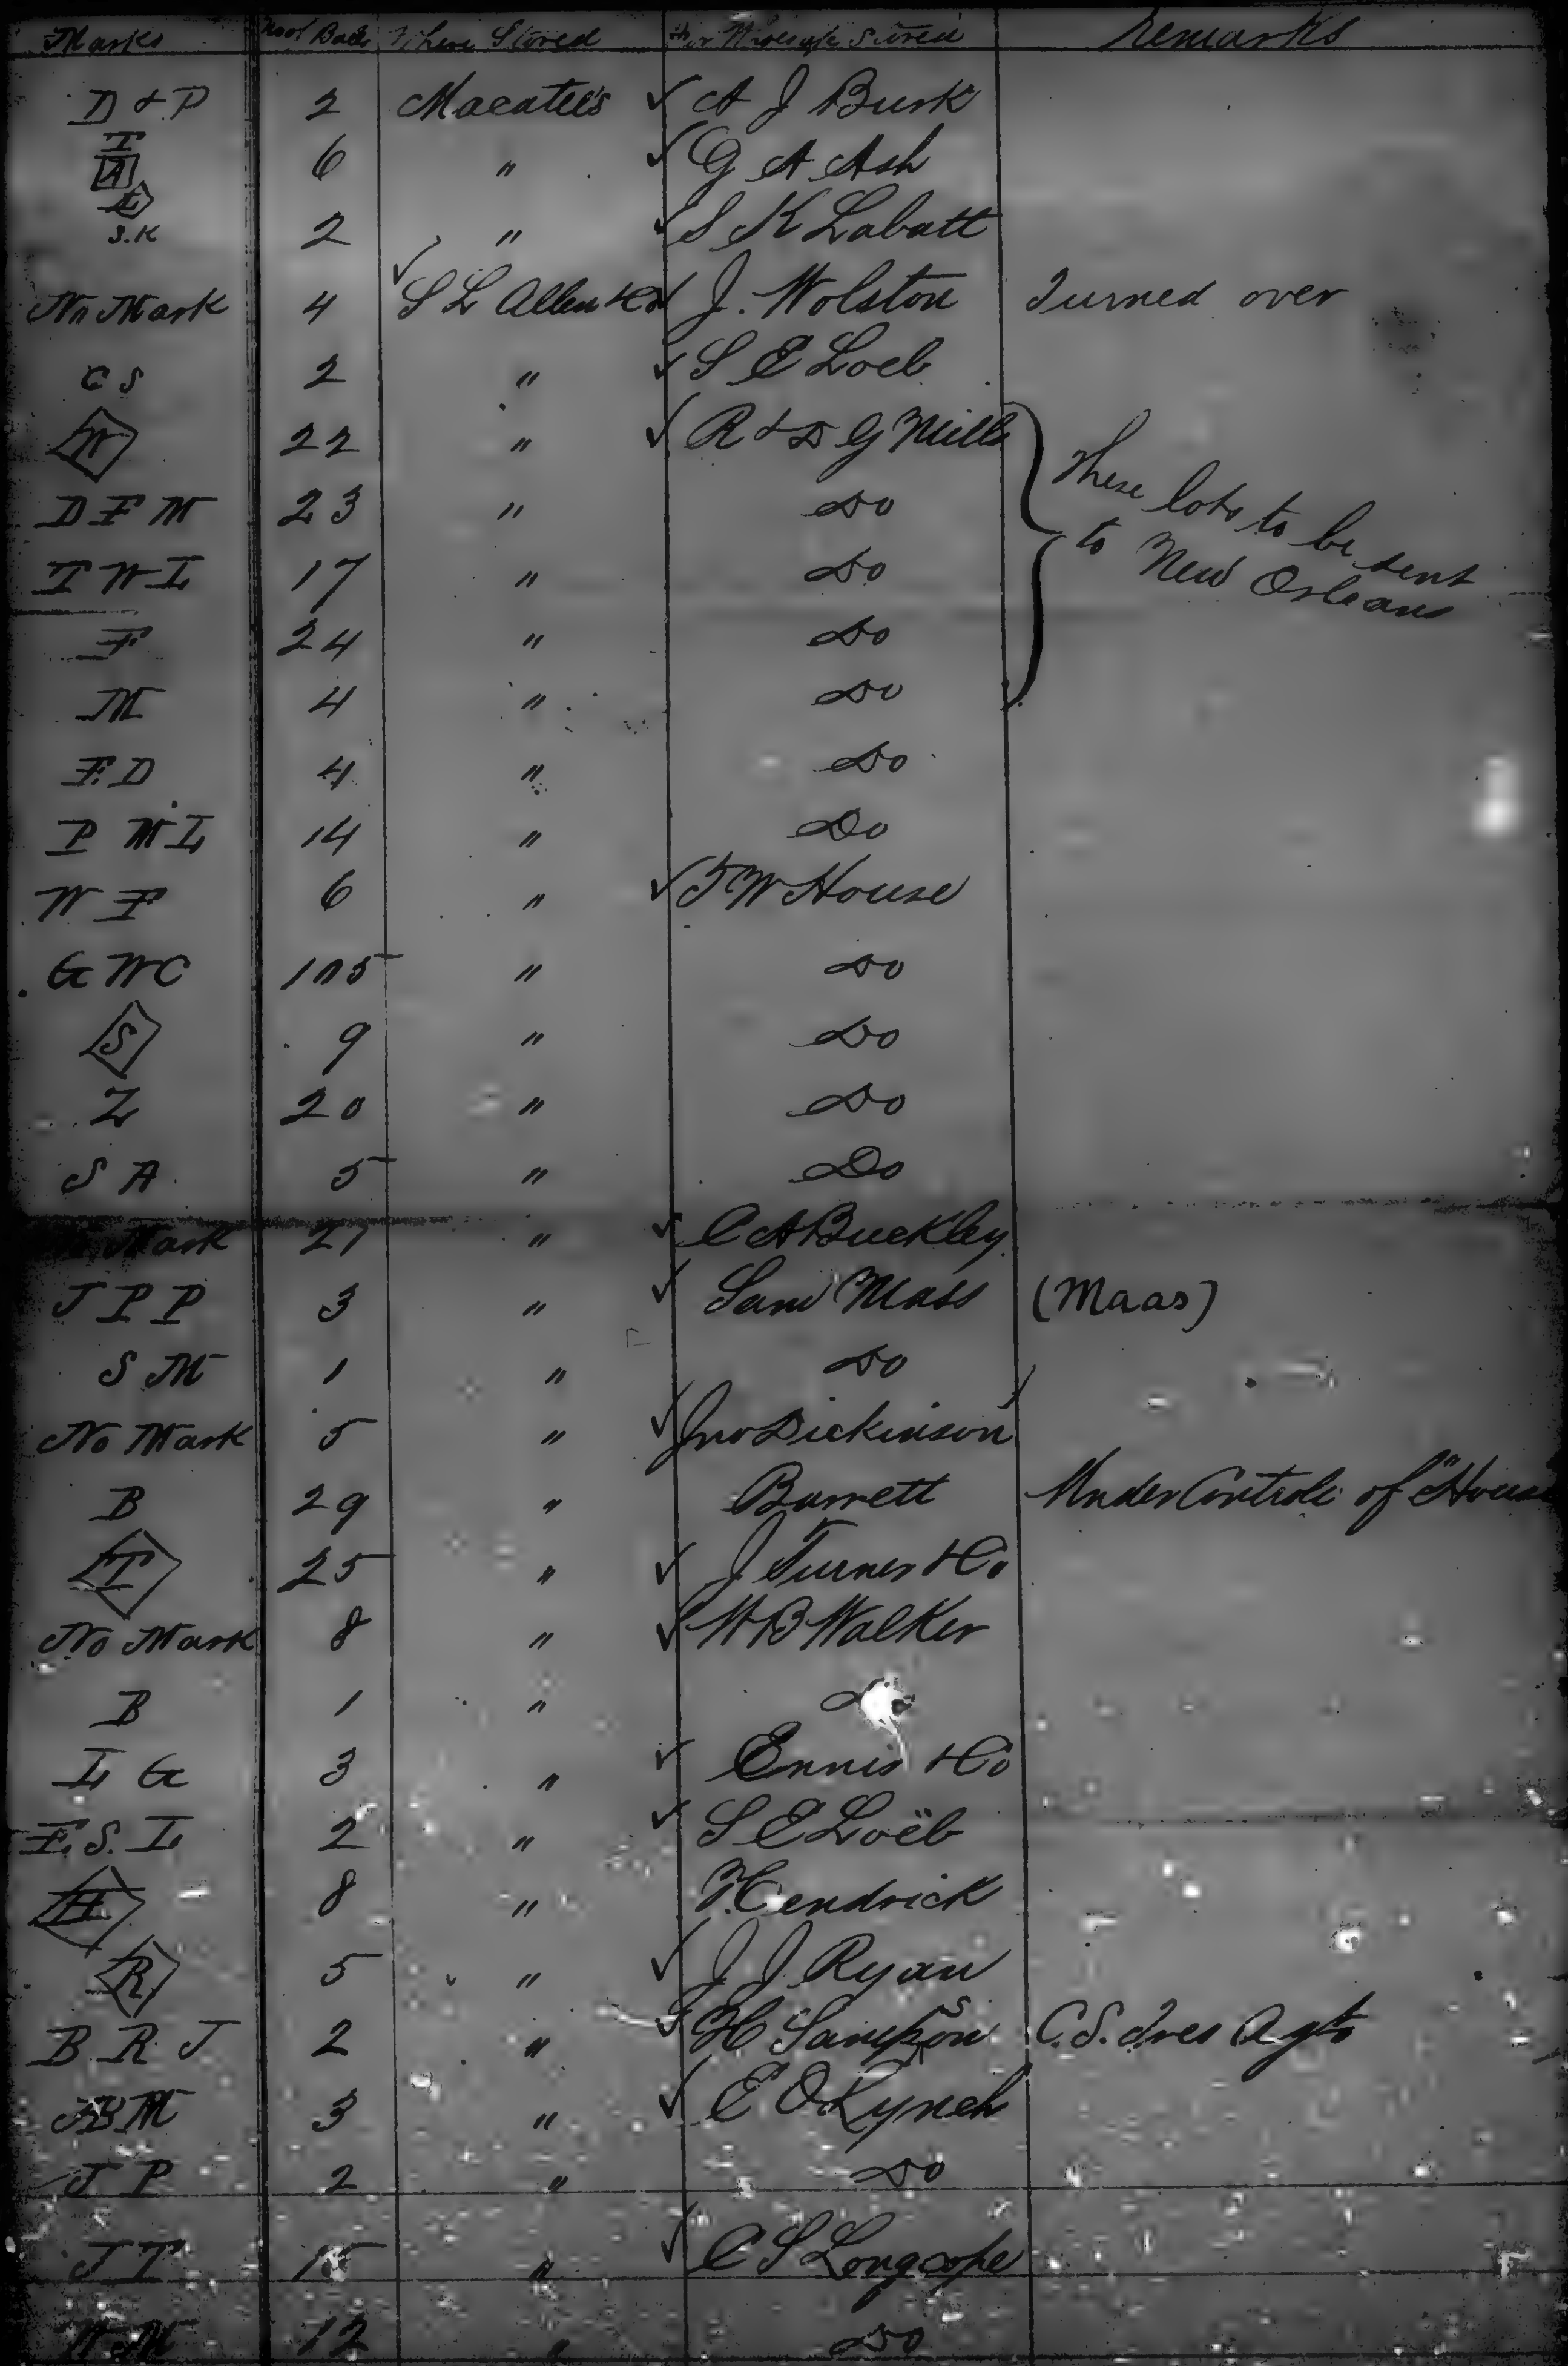 Marks No of Bales Where Stored For Whose a/c Stored Remarks
D & P 2 Macatee's ✓ A J Burk
T A 6 " ✓ G A Ash
L S.K 2 " ✓ S K Labatt
No Mark 4 ✓ S L Allen & Co ✓ J. Wolston Turned over
C S 2 " ✓ S E Loeb
W 22 " ✓ R & D G Mills These lots to be sent
D F M 23 " Do to New Orleans
T W L 17 " Do
F 24 " Do
M 4 " Do
F. D 4 " Do
P W L 14 " Do
W F 6 " ✓ T W House
G W C 105 " Do
S 9 " Do
Z 20 " Do
S A 5 " Do
No Mark 27 " ✓ C A Buckley
J P P 3 " ✓ Sam Mass (Maas)
S M 1 " Do
No Mark 5 " ✓ Jno Dickinson
B 29 " Barrett Under Controle of "House
T 25 " ✓ J Turner & Co
No Mark 8 " ✓ W B Walker
B 1 "
L G 3 " ✓ Ennis & Co
F. S. L 2 " ✓ S E Loëb
H 8 " Hendrick
R 5 " ✓ J J Ryan
B R J 2 " ✓ H Sampson C. S. Tres Agts
3 " ✓ E O Lynch
J P 2 " Do
J T 15 " ✓ C S Longcope
12 " Do